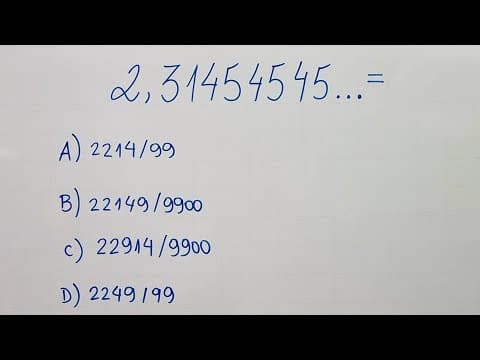 2,31454545...=
A) 2214/99
B) 22149/9900
C) 22914/9900
D) 2249/99